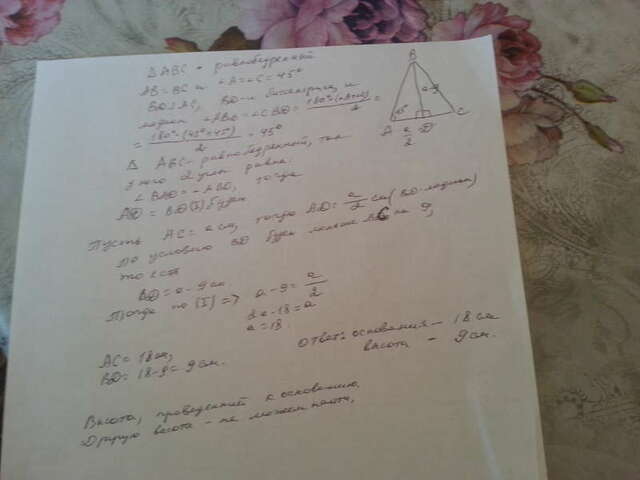 △ ABC - равнобедренный
AB = BC и ∠A = ∠C = 45°
BD ⊥ AC, BD - и биссектриса, и
медиана ∠ABD = ∠CBD = 180° - (∠A+∠C) / 2 =
= 180° - (45° + 45°) / 2 = 45°
△ ABD - равнобедренный, так
у него 2 угла равны.
∠BAD = ∠ABD, тогда
AD = BD (I) будет
Пусть AC = a см, тогда AD = a/2 см (BD - медиана)
По условию BD будет меньше AC на 9,
то есть
BD = a - 9 см.
Тогда по (I) => a - 9 = a/2
2a - 18 = a
a = 18.
AC = 18 см,
BD = 18 - 9 = 9 см.
Ответ: основания - 18 см
высота - 9 см.
Высота, проведенная к основанию.
Другую высота - не можем найти,
B
a-9
45°
A a/2 D C